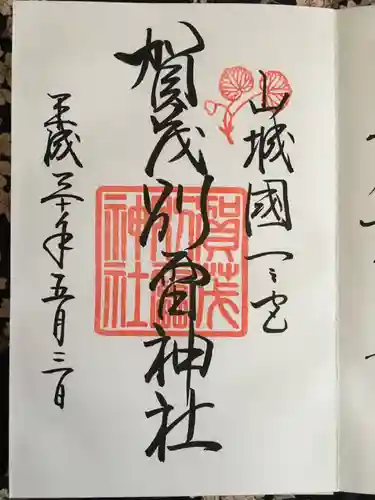 山城國一之宮
賀茂別雷神社
賀茂別雷神社
平成三十年五月三日